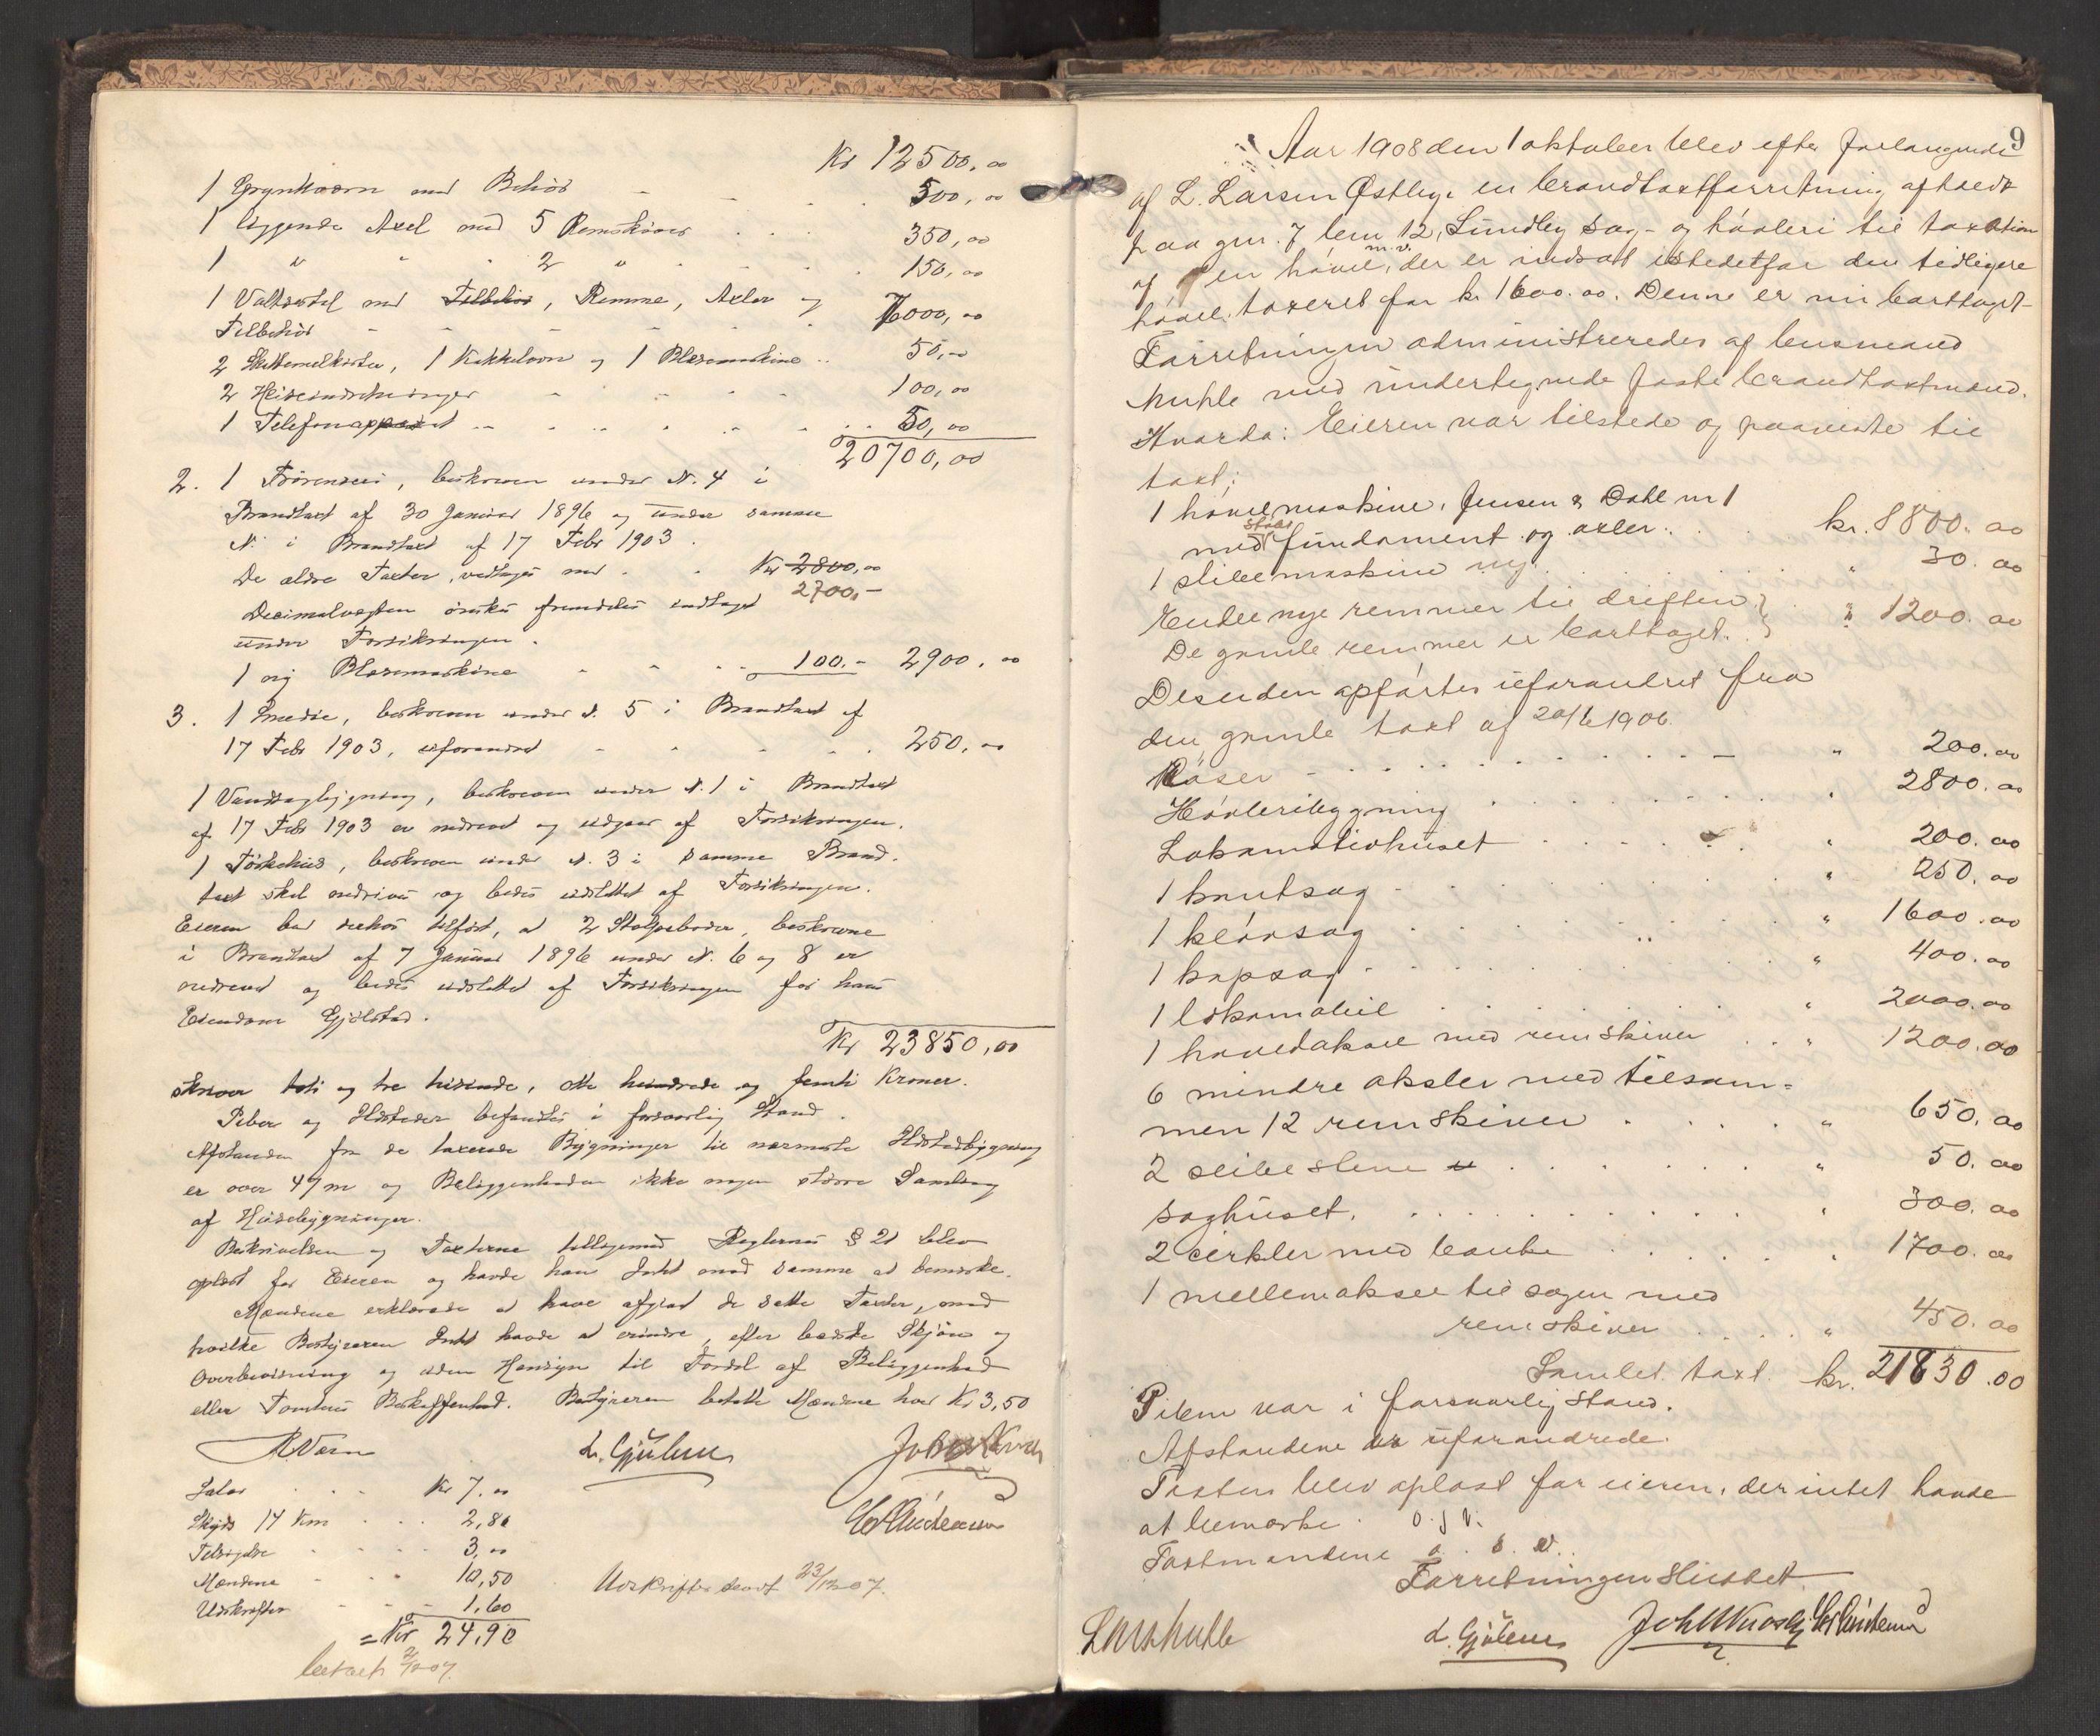 Kr 12500,00
1 Grynkværn med Behør - - . 500,00
1 liggende Axel med 5 Remskiver . . . 350,00
1 " " . 2 " . . . 150,00
1 Valtsestol med Tilbehør, Remme, Axler og
Tilbehør - - - - - . 7000,00
2 Skettemelkister, 1 Kakkelovn og 1 Blæsemaskine .. 50,00
2 Heiseindretninger - - - - 100,00
1 Telefonapparat - - - - - - - 50,00
20700,00
2. 1 , beskreven under N. 4 i
Brandtaxt af 30 Januar 1896 og under samme
N. i Brandtaxt af 17 Febr 1903.
De ældre Taxter, vedtages med - - Kr 2800,00
2700,-
Decimalvægten ønskes fremdeles indtaget
under Forsikringen.
1 ny Blæsemaskine - - - - 100.- 2900.00
3. 1 Smedie, beskreven under N. 5 i Brandtaxt af
17 Febr 1903, uforandret - - - - . 250,00
1 Vandsagbygning, beskreven under N. 1 i Brandtaxt
af 17 Febr 1903 er nedrevet og udgaar af Forsikringen.
1 Tørkehus, beskreven under N. 3 i samme Brand-
taxt skal nedrives og bedes udslettet af Forsikringen.
Eieren bad derhos tilført, at 2 Stolpeboder, beskrevne
i Brandtaxt af 7 Januar 1896 under N. 6 og 8 er
nedrevet og bedes udslettet af Forsikringen for hans
Eiendom Gjølstad.
Kr 23850,00
skriver toti og tre tusinde, otte hundrede og femti Kroner.
Piber og Ildsteder befandtes i forsvarlig Stand.
Afstanden fra de taxerede Bygninger til nærmeste Ildstedbygning
er over 47 m og Beliggenheden ikke nogen større Samling
af Husebygninger.
Beskrivelsen og Taxterne tilligemed Reglernes § 21 blev
oplæst for Eieren og havde han Intet mod samme at bemærke.
Mændene erklærede at have afgivet de satte Taxter, mod
hvilke Bestyreren Intet havde at erindre, efter bedste Skjøn og
Overbevisning og uden Hensyn til Fordel af Beliggenhed
eller Tomtens Beskaffenhed. Bestyreren betalte Mændene hver Kr 3,50
L. Gjølem
Salar . . . Kr 7.00
Skyds 14 Km . . . 2,80
Tilsigelse . . . . 3,00
Mændene - - . 10,50
Udskrifter - - - 1,60
= Kr 24,90
betalt 2/12 07.
Udskrifter sendt 23/12 07.
9
Aar 1908 den 1 oktober blev efter forlangende
af L. Larsen Østbye en brandtaxtforretning afholdt
paa gnr. 7 bnr 12, Lundby sag- og høvleri til taxation
af en høvel, m. v. der er indsat istedetfor den tidligere
høvel taxeret for kr. 1600.00. Denne er nu borttaget-
Forretningen administreredes af lensmand
Kuhle med undertegnede faste brandtaxtmænd.
Hvorda: Eieren var tilstede og paaviste til
taxt:
1 høvelmaskine, Jensen & Dahl nr 1
med støbt fundament og axler . . . kr. 8800.00
1 slibemaskine ny . . . . . . . " 30.00
Endel nye remmer til driften }
De gamle remmer er borttaget. } . " 1200.00
Desuden opførtes uforandret fra
den gamle taxt af 20/6 1906.
Kåser - . . . . . . . - " 200.00
Høvleribygning . . . . . . . " 2800.00
Lokomotivhuset . . . . . . " 200.00
1 knutsag - . . . . . . . " 250.00
1 kløvsag . . . . . . . " 1600.00
1 kapsag - . . . . . . . " 400.00
1 lokomobil . . . . . . . " 2000.00
1 hovedaksel med remskiver . . " 1200.00
6 mindre aksler med tilsam=
men 12 remskiver . . . . . " 650.00
2 slibestene . . . . . . " 50.00
Saghuset. . . . . . . . . " 300.00
2 cirkler med bænke . . . . " 1700.00
1 mellemaksel til sagen med
remskiver . . . . " 450.00
Samlet taxt. kr. 21830.00
Piben var i forsvarlig stand.
Afstandene er uforandrede.
Taxten blev oplæst for eieren, der intet havde
at bemærke. o. s. v.
Taxtmændene o. s. v..
Forretningen sluttet
Lars Kuhle L. Gjølem